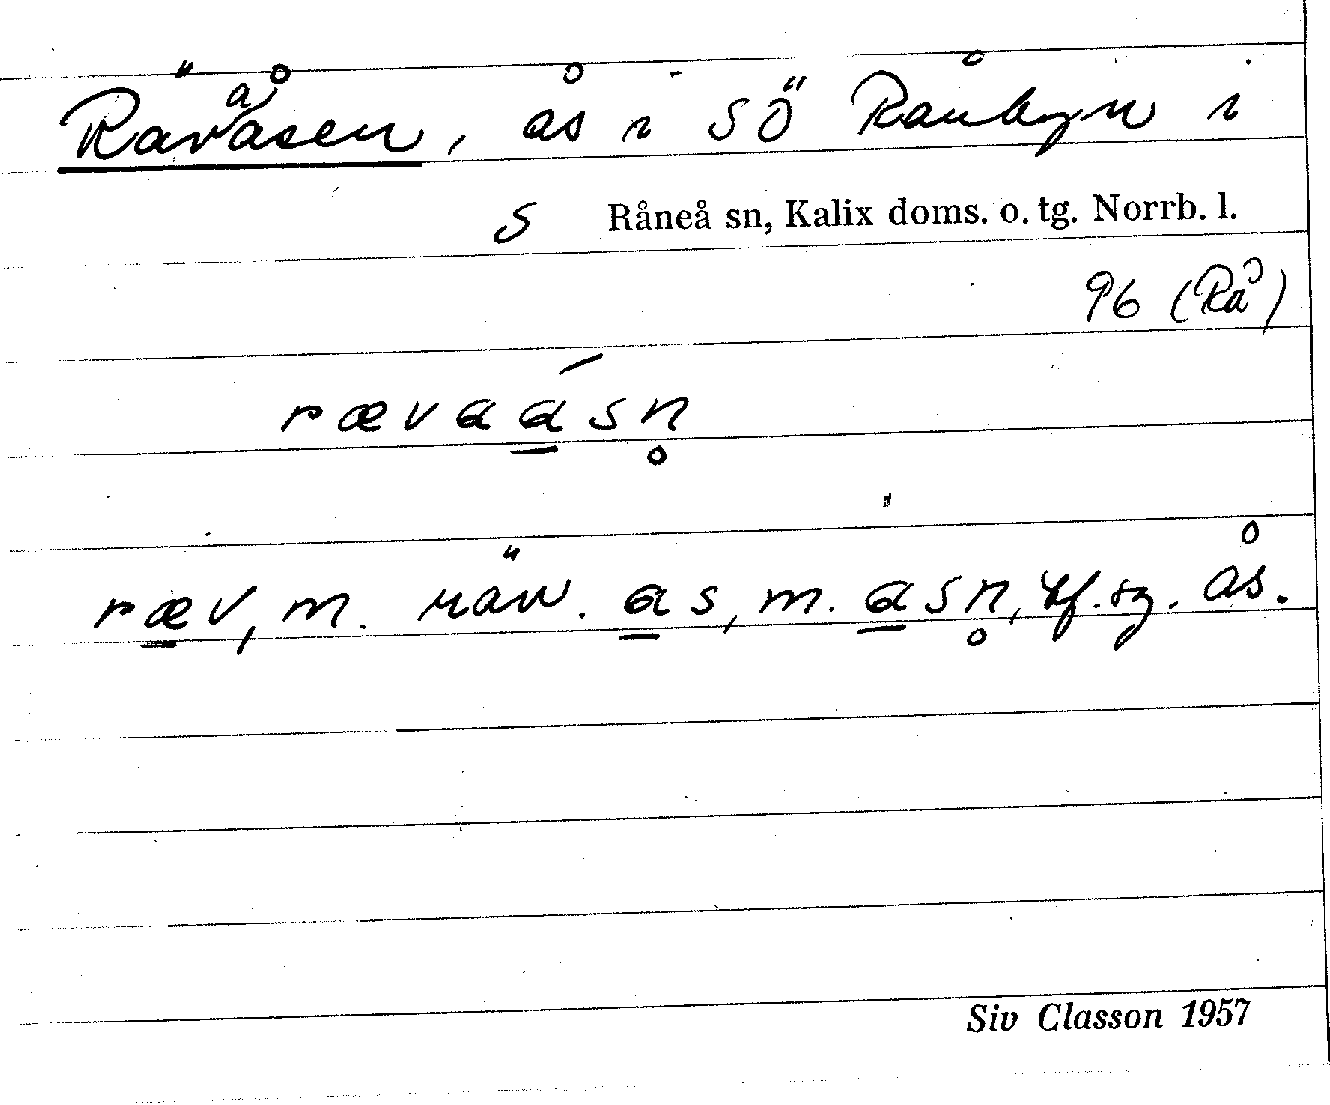 Rävaåsen, ås i SÖ Rånbyn i
S Råneå sn, Kalix doms. o. tg. Norrb. l.
96 (Rå)
rævɑɑ́sn̥
ræv, m. räv. ɑs, m. ɑsn̥, bf. sg. ås.
Siv Classon 1957